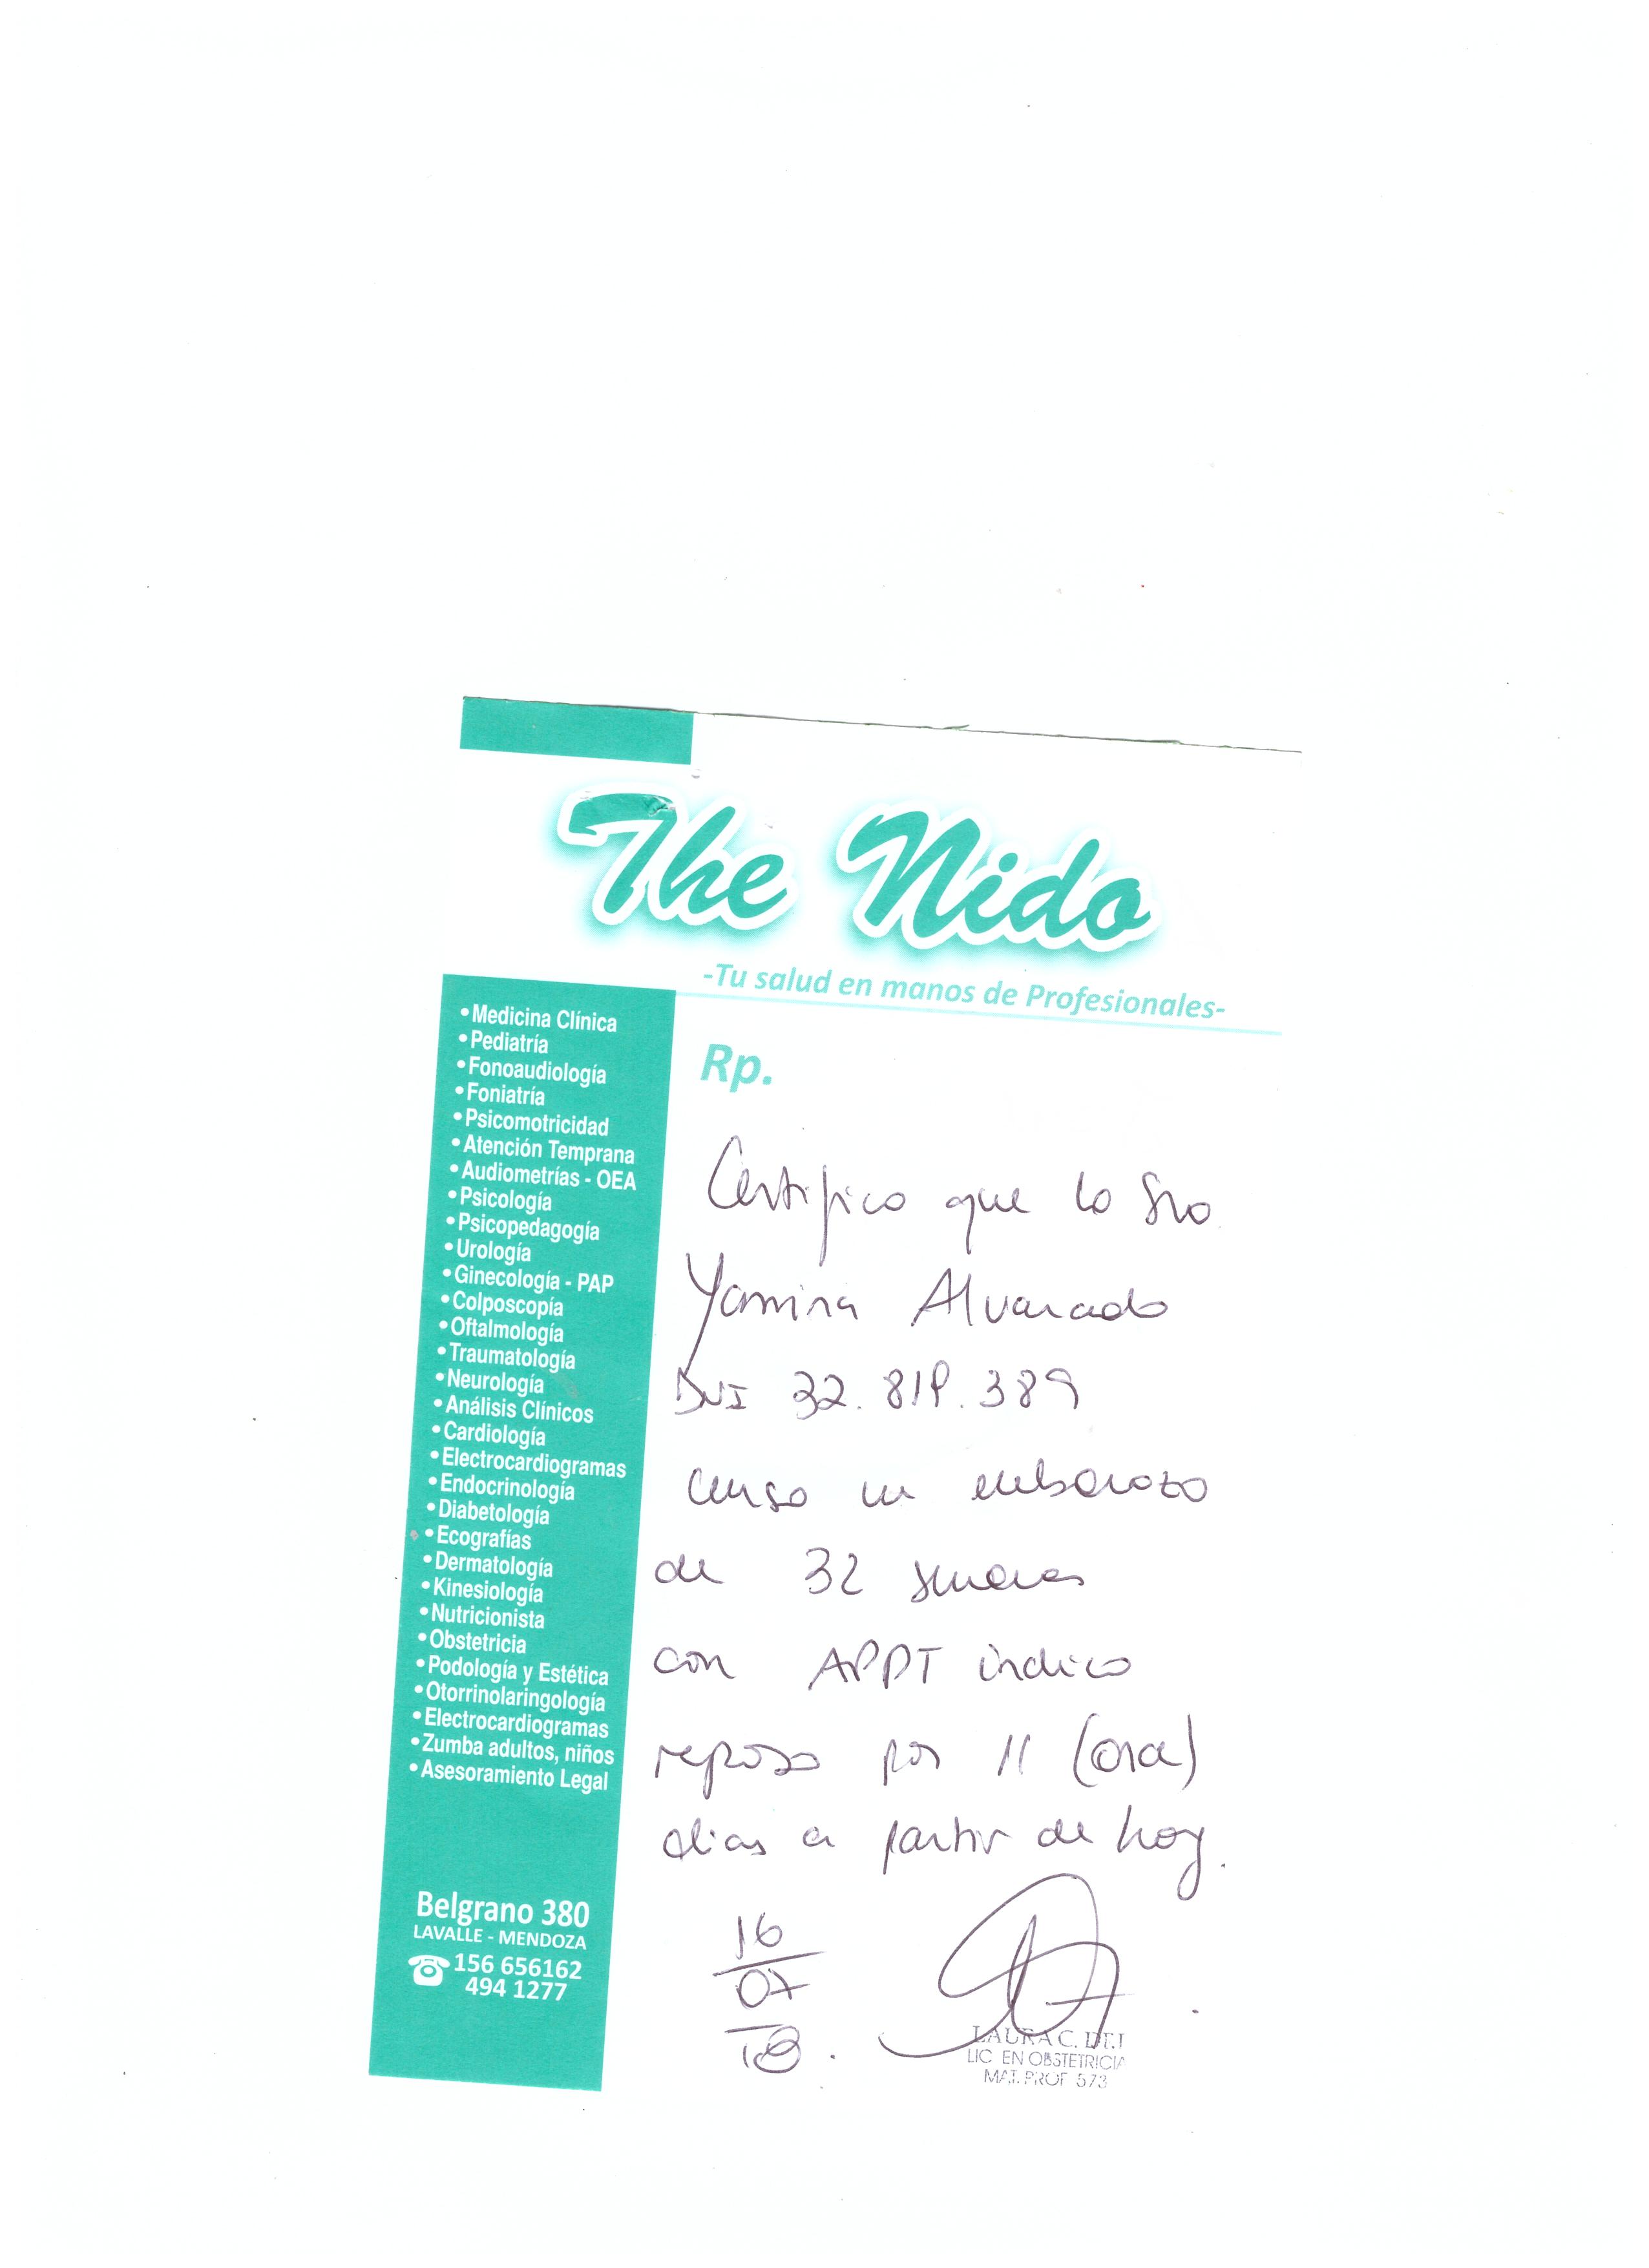 The Nido
-Tu salud en manos de Profesionales-
• Medicina Clínica
• Pediatría
• Fonoaudiología
• Foniatría
• Psicomotricidad
• Atención Temprana
• Audiometrías - OEA
• Psicología
• Psicopedagogía
• Urología
• Ginecología - PAP
• Colposcopía
• Oftalmología
• Traumatología
• Neurología
• Análisis Clínicos
• Cardiología
• Electrocardiogramas
• Endocrinología
• Diabetología
• Ecografías
• Dermatología
• Kinesiología
• Nutricionista
• Obstetricia
• Podología y Estética
• Otorrinolaringología
• Electrocardiogramas
• Zumba adultos, niños
• Asesoramiento Legal
Belgrano 380
LAVALLE - MENDOZA
156 656162
494 1277
Rp.
Certifico que la Sra
Yamina Alvarado
DNI 32.819.389
cursa un embarazo
de 32 semanas
con APPT indico
reposo por 11 (once)
dias a partir de hoy.
16
07
18.
LAURA C.
LIC EN OBSTETRICIA
MAT. PROF 573